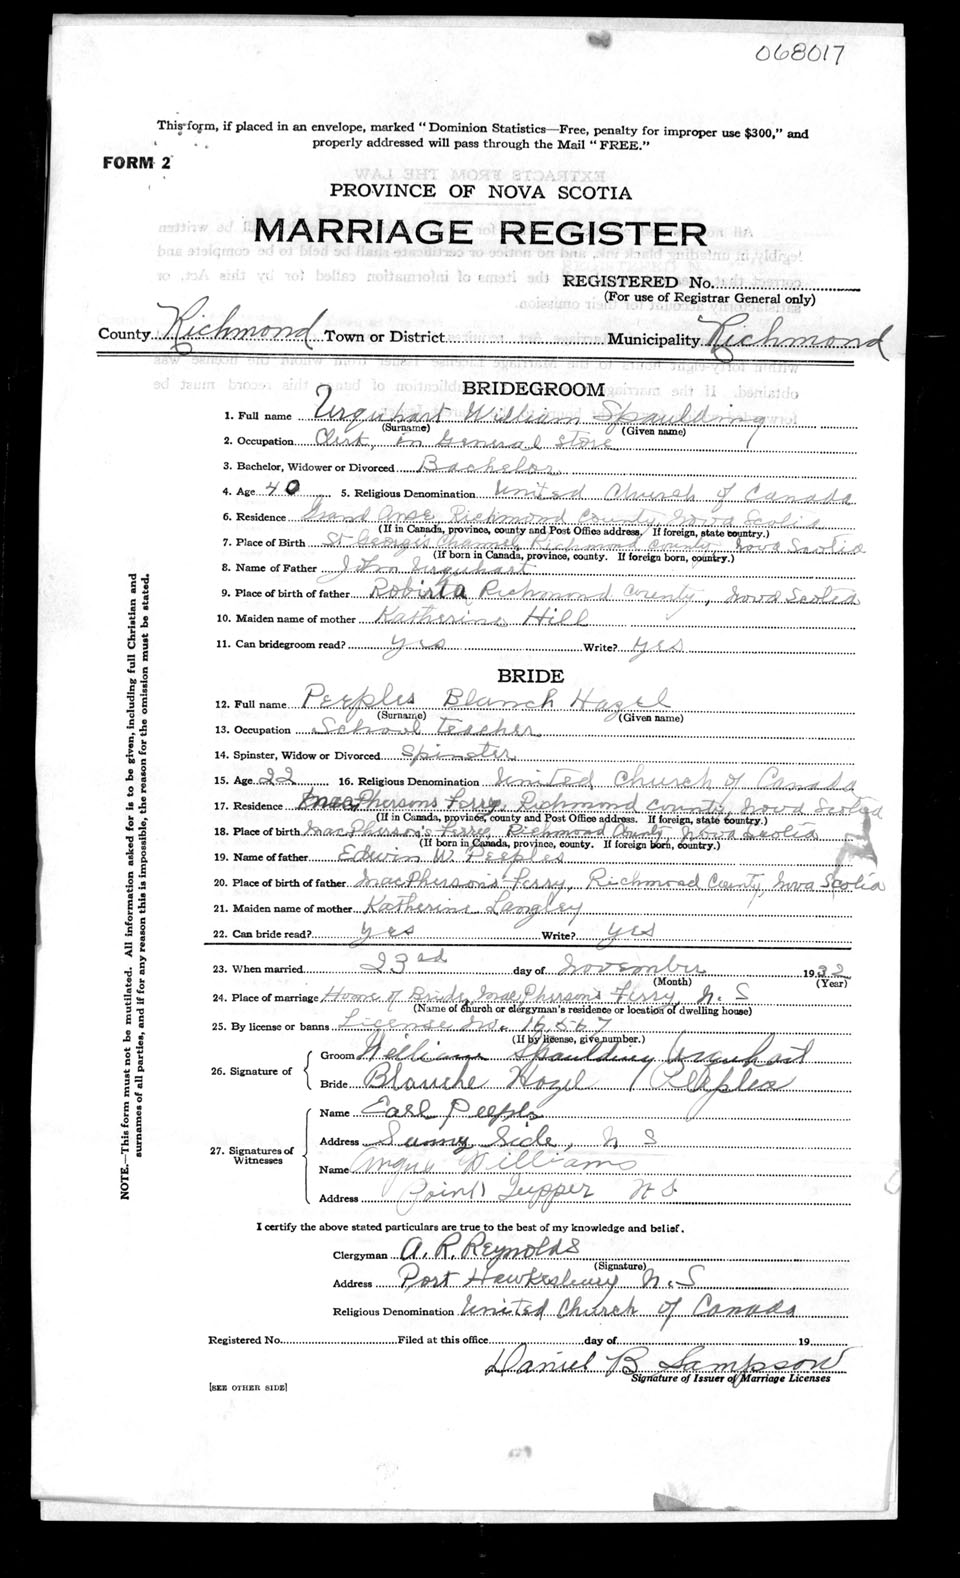 068017
This form, if placed in an envelope, marked "Dominion Statistics—Free, penalty for improper use $300," and
properly addressed will pass through the Mail "FREE."
FORM 2
PROVINCE OF NOVA SCOTIA
MARRIAGE REGISTER
REGISTERED No.
(For use of Registrar General only)
County Richmond Town or District Municipality Richmond
BRIDEGROOM
1. Full name Urquhart William Spaulding
(Surname) (Given name)
2. Occupation Clerk, in General Store
3. Bachelor, Widower or Divorced Bachelor
4. Age 40 5. Religious Denomination United Church of Canada
6. Residence Grand Anse Richmond County Nova Scotia
(If in Canada, province, county and Post Office address. If foreign, state country.)
7. Place of Birth St Georges Channel, Richmond County Nova Scotia
(If born in Canada, province, county. If foreign born, country.)
8. Name of Father John Urquhart
9. Place of birth of father Roberta Richmond County, Nova Scotia
10. Maiden name of mother Katherine Hill
11. Can bridegroom read? yes Write? yes
BRIDE
12. Full name Peeples Blanch Hazel
(Surname) (Given name)
13. Occupation School Teacher
14. Spinster, Widow or Divorced Spinster
15. Age 22 16. Religious Denomination United Church of Canada
17. Residence MacPhersons Ferry, Richmond County, Nova Scotia
(If in Canada, province, county and Post Office address. If foreign, state country.)
18. Place of birth MacPherson's Ferry, Richmond County, Nova Scotia
(If born in Canada, province, county. If foreign born, country.)
19. Name of father Edwin W. Peeples
20. Place of birth of father MacPherson's Ferry, Richmond County, Nova Scotia
21. Maiden name of mother Katherine Langley
22. Can bride read? yes Write? yes
23. When married 23rd day of November 1932
(Month) (Year)
24. Place of marriage Home of Bride, MacPhersons Ferry, N. S
(Name of church or clergyman's residence or location of dwelling house)
25. By license or banns License No. 16567
(If by license, give number.)
26. Signature of
Groom William Spaulding Urquhart
Bride Blanche Hazel Peeples
27. Signatures of Witnesses
Name Earl Peeples
Address Sunny Side, N S
Name Angus Williams
Address Point Tupper N. S.
I certify the above stated particulars are true to the best of my knowledge and belief.
Clergyman A. R. Reynolds
(Signature)
Address Port Hawkesbury N. S
Religious Denomination United Church of Canada
Registered No. Filed at this office day of 19
Daniel B Sampson
Signature of Issuer of Marriage Licenses
[SEE OTHER SIDE]
NOTE.—This form must not be mutilated. All information asked for is to be given, including full Christian and
surnames of all parties, and if for any reason this is impossible, the reason for the omission must be stated.